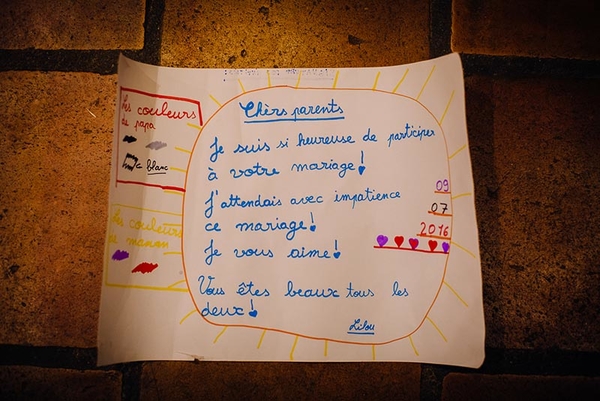 Chèrs parents
Je suis si heureuse de participer
à votre mariage!
J'attendais avec impatience
ce mariage!
Je vous aime!
Vous êtes beaux tous les
deux!
Lilou
09
07
2016
Les couleurs
de papa
blanc
Les couleurs
de maman